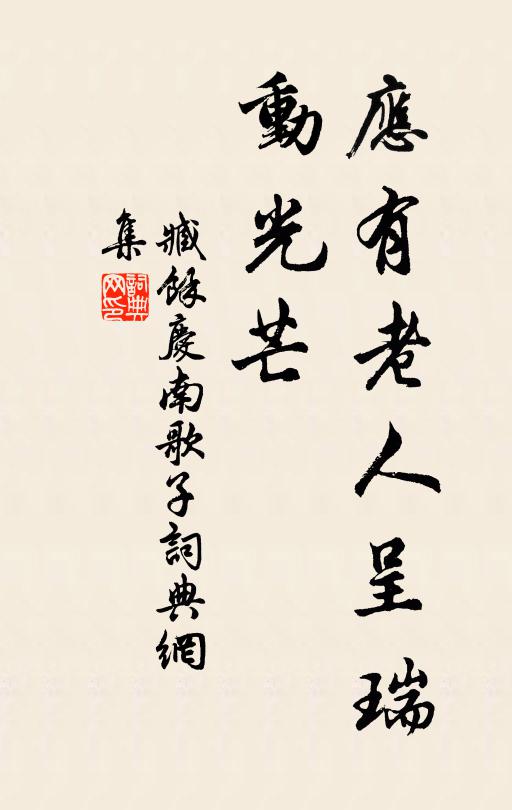 應有老人呈瑞
動光芒
臧餘慶南歌子詞典網
集
詞典
网印